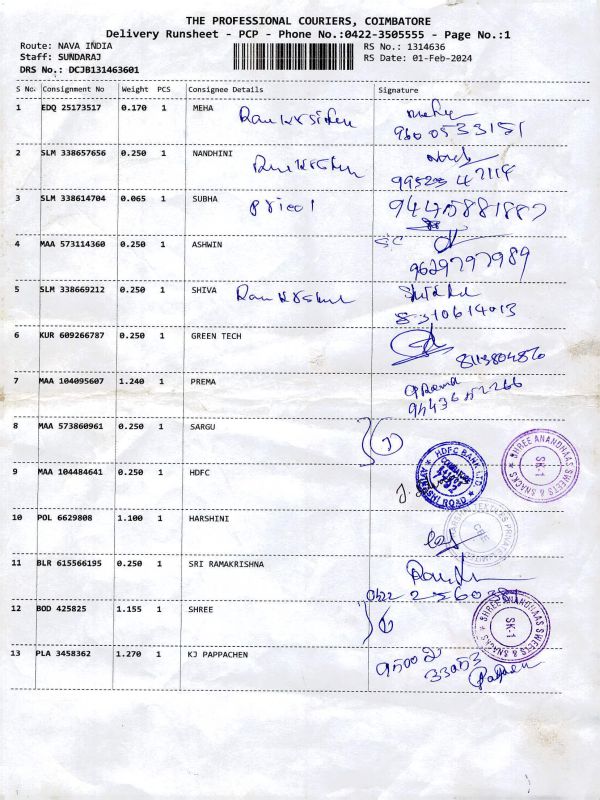 THE PROFESSIONAL COURIERS, COIMBATORE
Delivery Runsheet - PCP - Phone No.:0422-3505555 - Page No.:1
Route: NAVA INDIA RS No.: 1314636
Staff: SUNDARAJ RS Date: 01-Feb-2024
DRS No.: DCJB131463601
S No. Consignment No Weight PCS Consignee Details Signature
1 EDQ 25173517 0.170 1 MEHA
9600533151
2 SLM 338657656 0.250 1 NANDHINI
3 SLM 338614704 0.065 1 SUBHA
4 MAA 573114360 0.250 1 ASHWIN
9629797989
5 SLM 338669212 0.250 1 SHIVA
8310614013
6 KUR 609266787 0.250 1 GREEN TECH
7 MAA 104095607 1.240 1 PREMA
8 MAA 573860961 0.250 1 SARGU
SHREE ANANDHAAS SWEETS & SNACKS SK-1
9 MAA 104484641 0.250 1 HDFC
HDFC BANK LTD AVINASHI ROAD
10 POL 6629808 1.100 1 HARSHINI
CBE
11 BLR 615566195 0.250 1 SRI RAMAKRISHNA
12 BOD 425825 1.155 1 SHREE
SHREE ANANDHAAS SWEETS & SNACKS SK-1
13 PLA 3458362 1.270 1 KJ PAPPACHEN